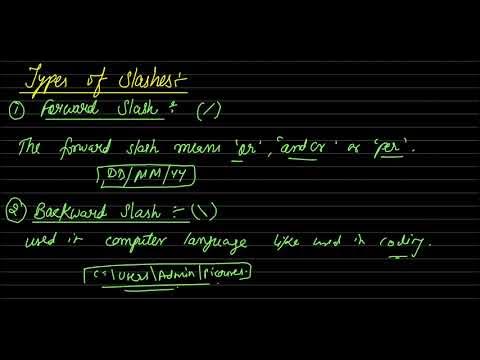 Types of Slashes:-
① Forward Slash : (/)
The forward slash means 'or', 'and/or' or 'per'.
DD/MM/YY
② Backward Slash :- (\)
used in computer language like used in coding.
C:\Users\Admin\Pictures.